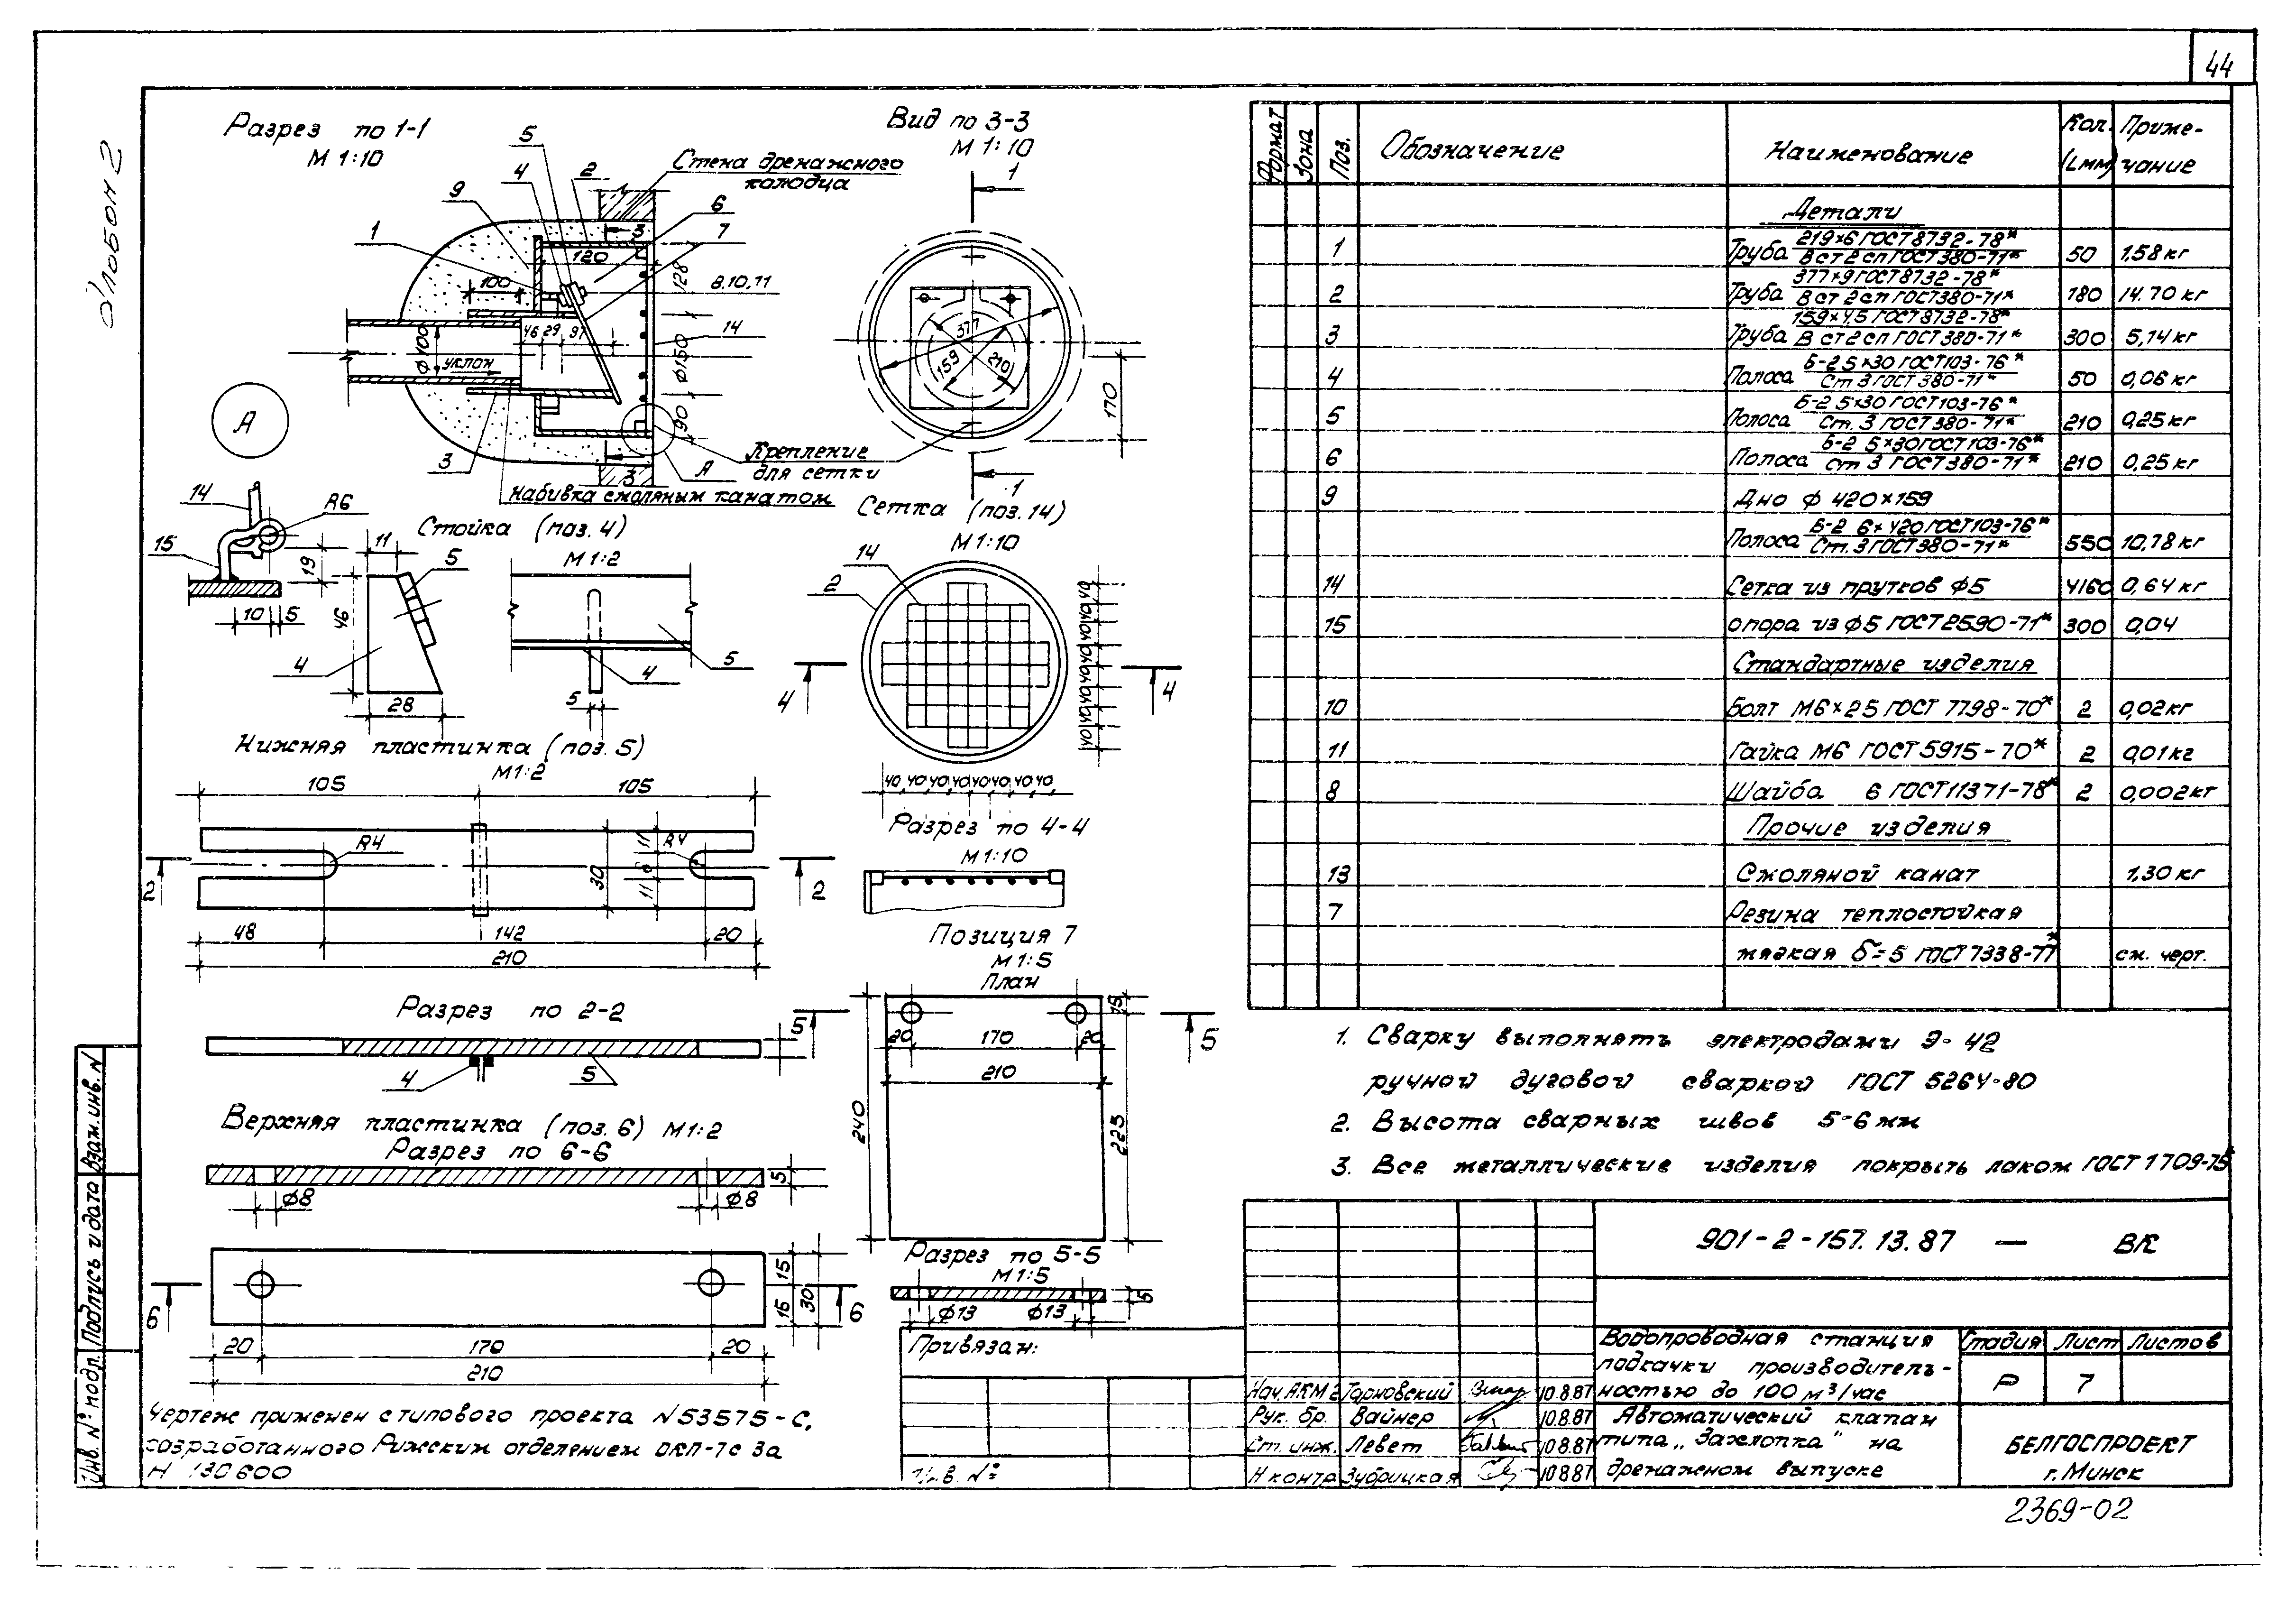 44
Альбом 2
Разрез по 1-1
М 1:10
5
4
2
9
1
Стена дренажного
колодца
6
7
3
120
100
128
8,10,11
46 29 97
14
ф100
уклон
ф150
90
3
А
3
Крепление
для сетки
Набивка смоляным канатом
Вид по 3-3
М 1:10
1
377
159
210
170
1
А
14
R6
15
19
10 5
Стойка (поз. 4)
М 1:2
11
5
46
4
28
5
4
5
Сетка (поз. 14)
М 1:10
14
2
4
4
40 40 40 40 40 40 40 40
Нижняя пластинка (поз. 5)
М1:2
105
105
R4
R4
30
11
8
11
2
2
48
142
20
210
Разрез по 4-4
М 1:10
Позиция 7
М 1:5
План
15
20
170
20
210
240
225
5
5
Разрез по 2-2
4
5
Верхняя пластинка (поз. 6) М 1:2
Разрез по 6-6
5
ф8
ф8
Разрез по 5-5
М 1:5
5
ф13
ф13
6
6
15
15
30
20
170
20
210
Чертеж применен с типового проекта N 53575-С,
разработанного Рижским отделением ОКП-7с за
Н 130600
Формат
Зона
Поз.
Обозначение
Наименование
Кол.
(Lмм)
Приме-
чание
Детали
1 Труба 219×6 ГОСТ 8732-78* / В ст 2 сп ГОСТ 380-71* 50 1.58 кг
2 Труба 377×9 ГОСТ 8732-78* / В ст 2 сп ГОСТ 380-71* 180 14.70 кг
3 Труба 159×4,5 ГОСТ 8732-78* / В ст 2 сп ГОСТ 380-71* 300 5,14 кг
4 Полоса Б-2 5×30 ГОСТ 103-76* / Ст 3 ГОСТ 380-71* 50 0,06 кг
5 Полоса Б-2 5×30 ГОСТ 103-76* / Ст. 3 ГОСТ 380-71* 210 0,25 кг
6 Полоса Б-2 5×30 ГОСТ 103-76* / Ст 3 ГОСТ 380-71* 210 0,25 кг
9 Дно ф 420×159
Полоса Б-2 6×420 ГОСТ 103-76* / Ст. 3 ГОСТ 380-71* 550 10,78 кг
14 Сетка из прутков ф5 4160 0,64 кг
15 опора из ф5 ГОСТ 2590-71* 300 0,04
Стандартные изделия
10 Болт М6×25 ГОСТ 7798-70* 2 0,02 кг
11 Гайка М6 ГОСТ 5915-70* 2 0,01 кг
8 Шайба 6 ГОСТ 11371-78* 2 0,002 кг
Прочие изделия
13 Смоляной канат 1,30 кг
7 Резина теплостойкая
мягкая δ=5 ГОСТ 7338-77* см. черт.
1. Сварку выполнять электродами Э-42
ручной дуговой сваркой ГОСТ 5264-80
2. Высота сварных швов 5-6 мм
3. Все металлические изделия покрыть лаком ГОСТ 1709-75
901-2-157.13.87 — ВК
Водопроводная станция
подкачки производитель-
ностью до 100 м³/час
Стадия Лист Листов
Р 7
Автоматический клапан
типа „Захлопка" на
дренажном выпуске
БЕЛГОСПРОЕКТ
г. Минск
Привязан:
Инв. №
Нач. АКМ 2 Тарновский 10.8.87
Рук. бр. Вайнер 10.8.87
Ст. инж. Левет 10.8.87
Н контр Зубрицкая 10.8.87
Инв. № подл. Подпись и дата Взам. инв. N
2369-02